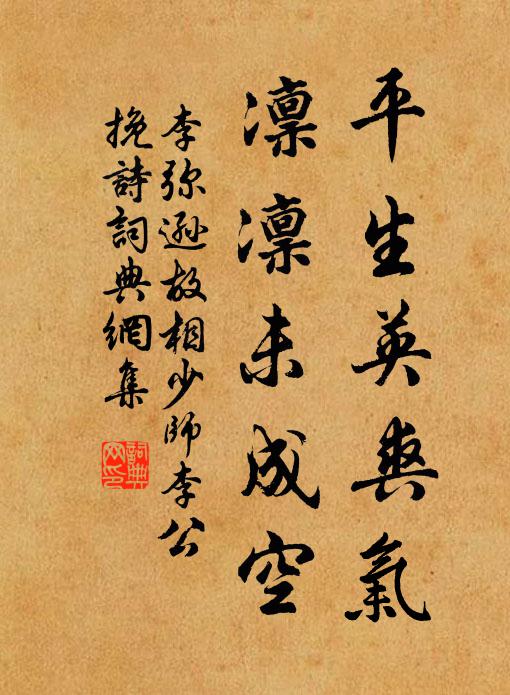 平生英爽氣
凜凜未成空
李弥遜故相少師李公
挽詩詞典網集
詞典
网印